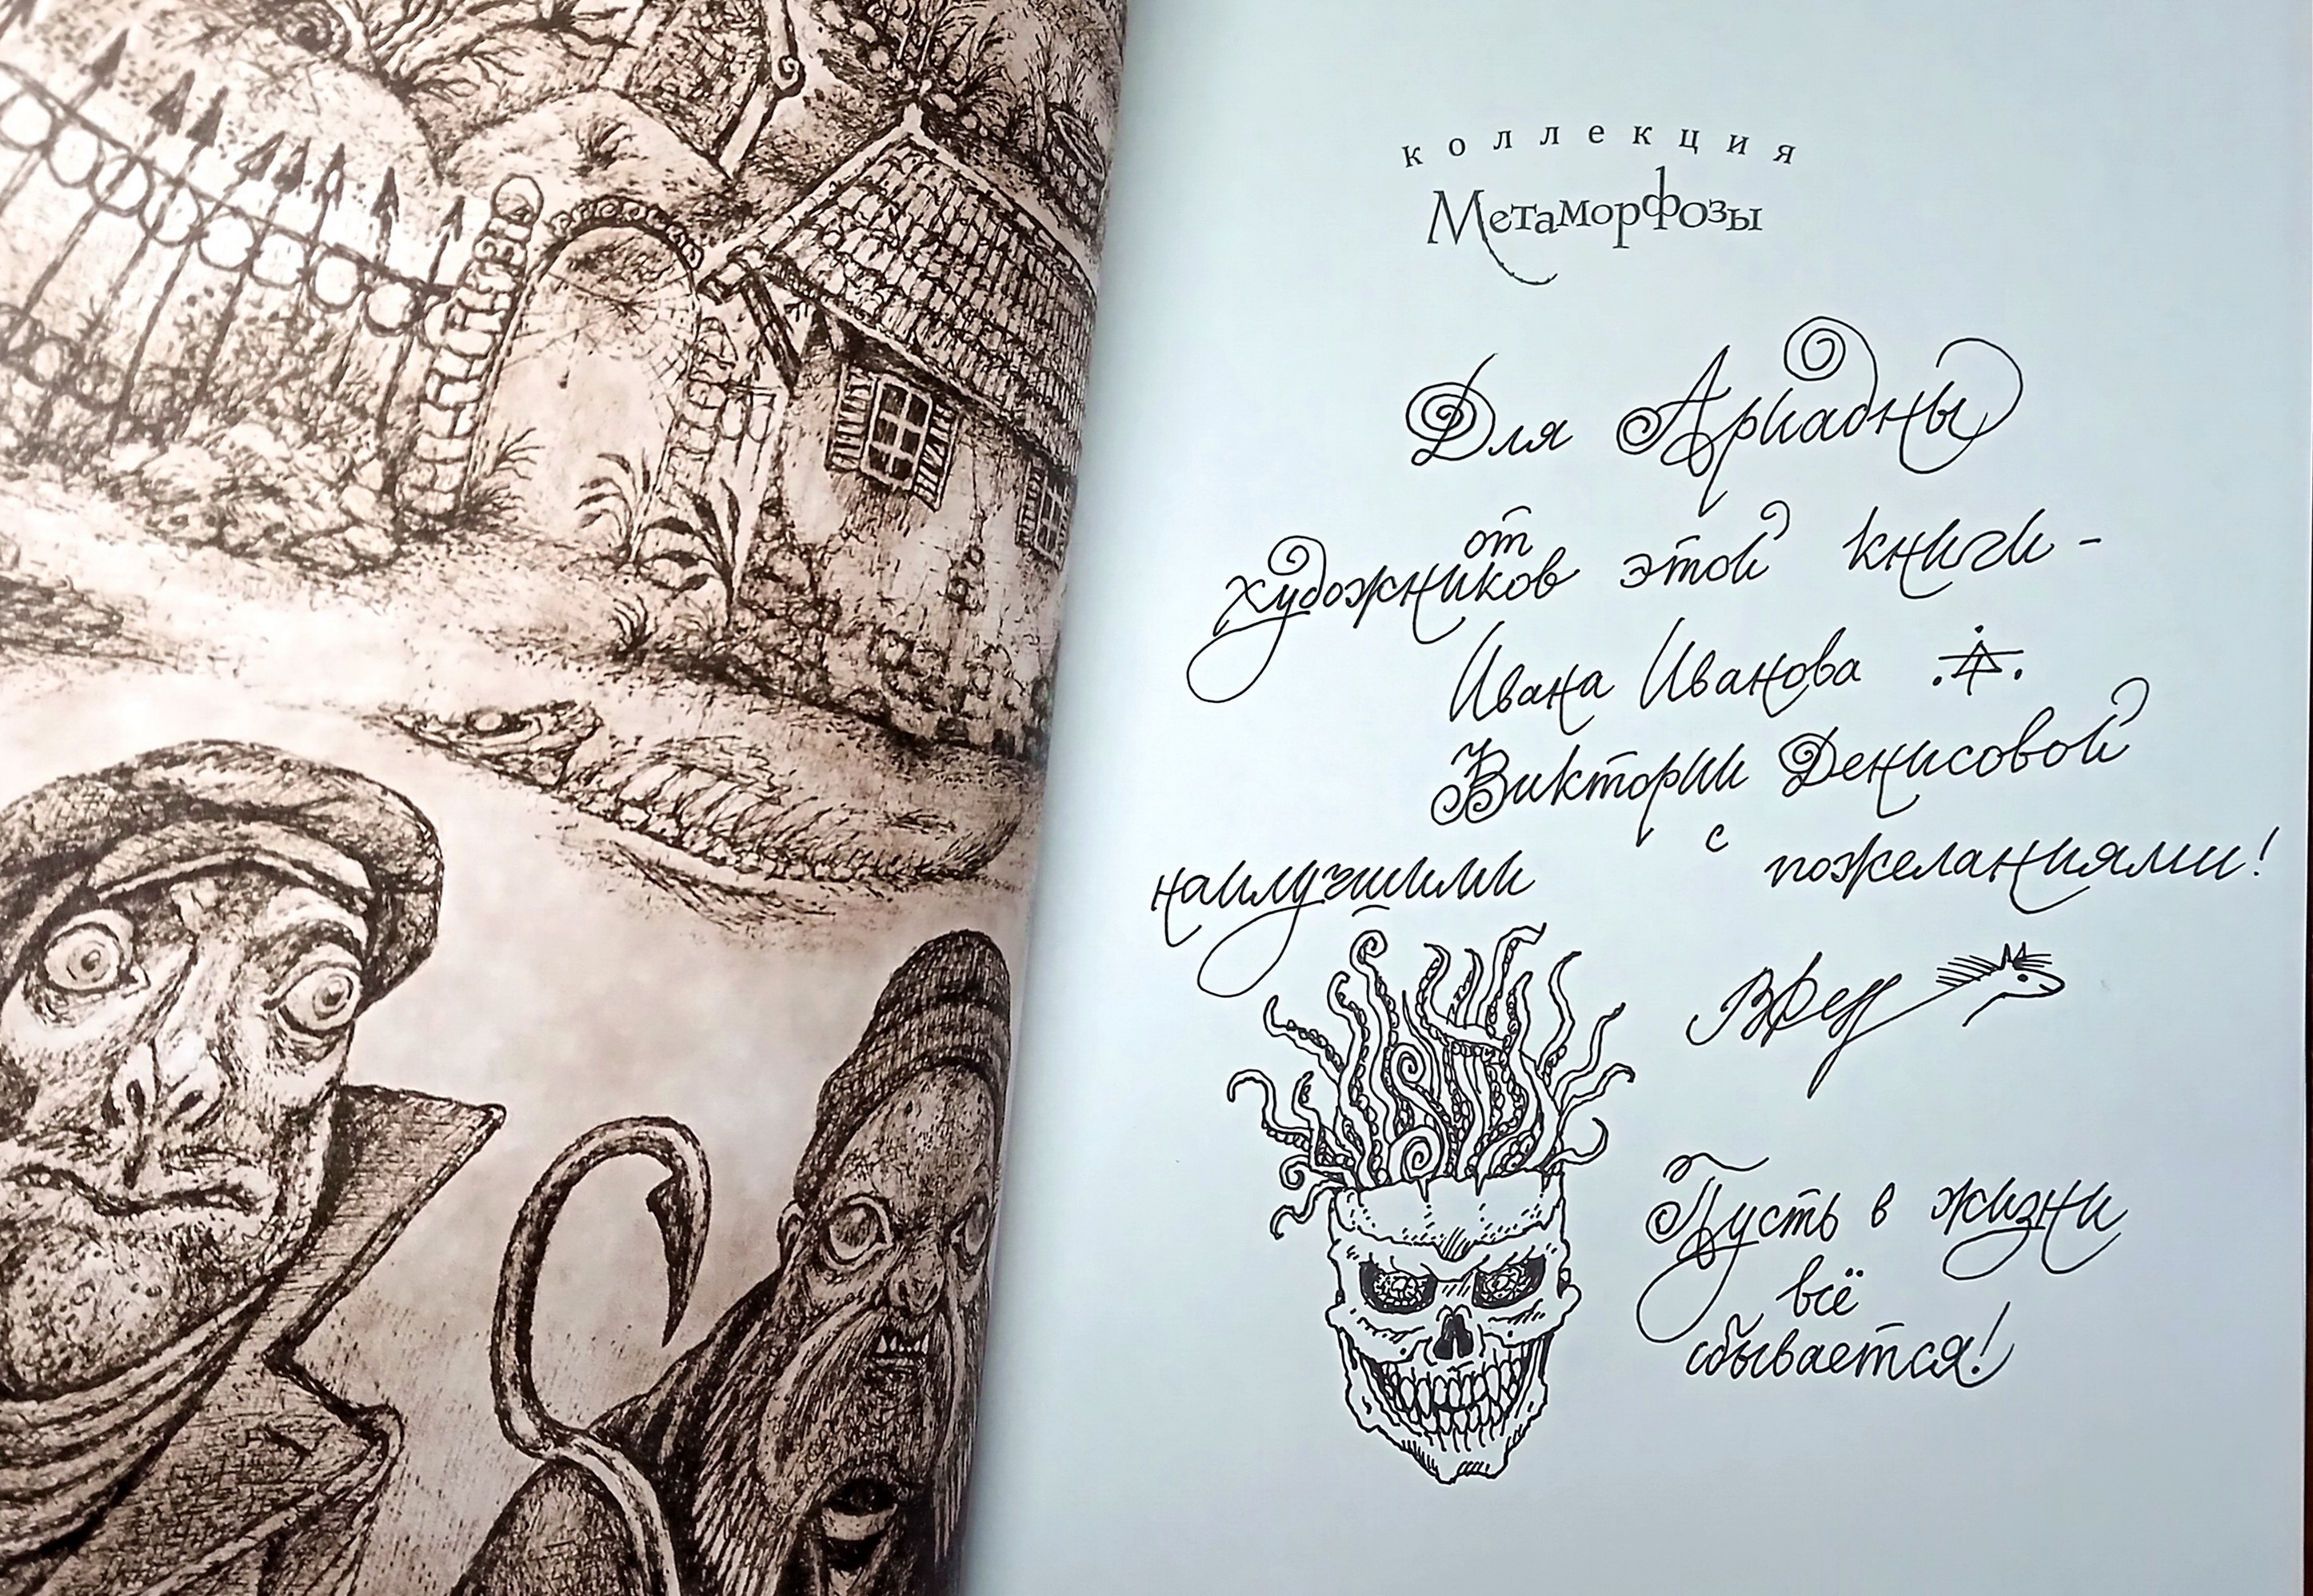 коллекция
Метаморфозы
Для Ариадны
от
художников этой книги -
Ивана Иванова
Виктории Денисовой
с
наилучшими пожеланиями!
Пусть в жизни
всё
сбывается!